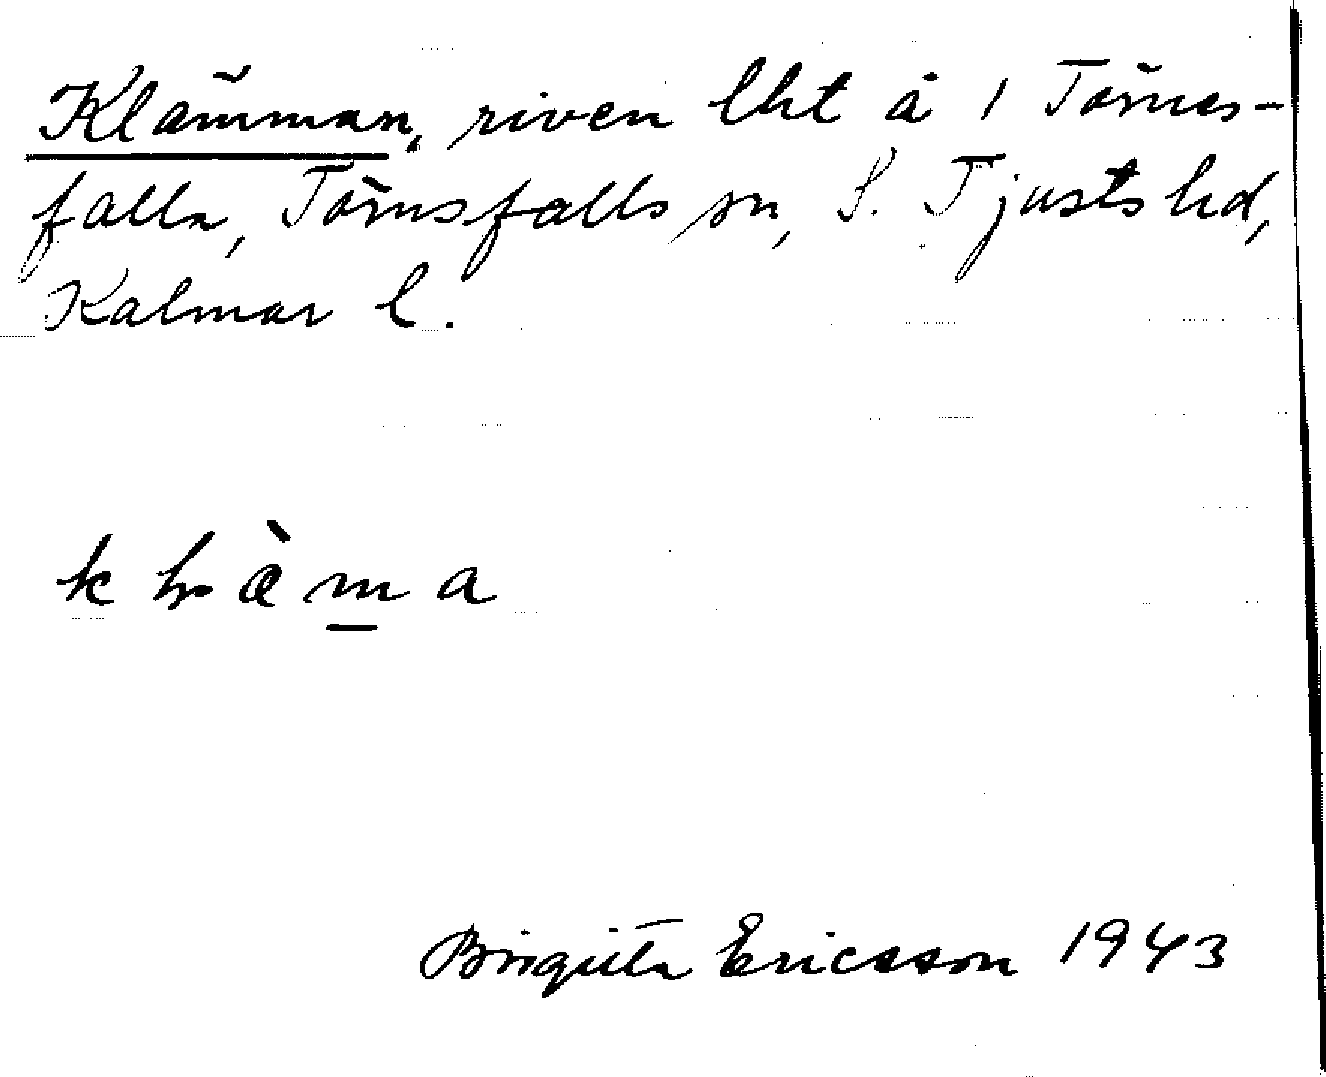 Klämman, riven lht å 1 Törnes-
falla, Törnsfalls sn, S. Tjusts hd,
Kalmar l.
Birgitta Ericsson 1943